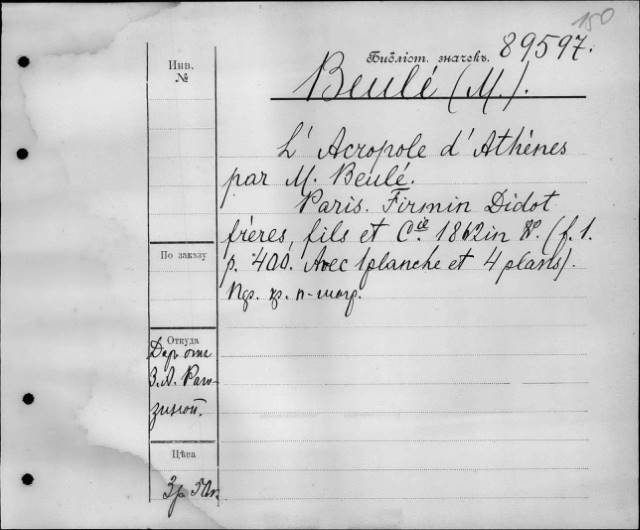 150
Библіот. значекъ. 89597.
Инв.
№
Beulé (M.).
L' Acropole d'Athènes
par M. Beulé.
Paris. Firmin Didot
frères, fils et Cie 1862 in 8º. (f. 1.
p. 400. Avec 1 planche et 4 plans).
По заказу
Откуда
Даръ отъ
З. А.
Цѣна
3р 50к